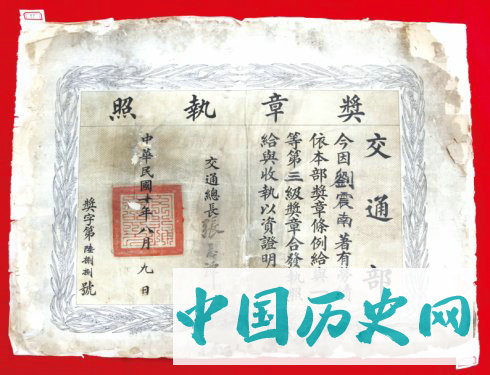 獎章執照
交通部
今因劉震南著有
依本部獎章條例給
等第三級獎章合發執照
給與收執以資證明
交通總長張
中華民國十年八月九日
獎字第陸捌捌號
中国历史网